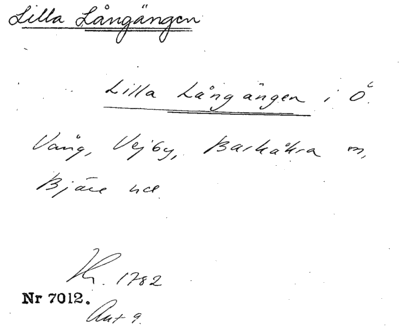 Lilla Långängen
Lilla Långängen i Ö.
Vång, Vejby, Barkåkra m,
Bjäre hd.
1782
Nr 7012.
Akt 9.